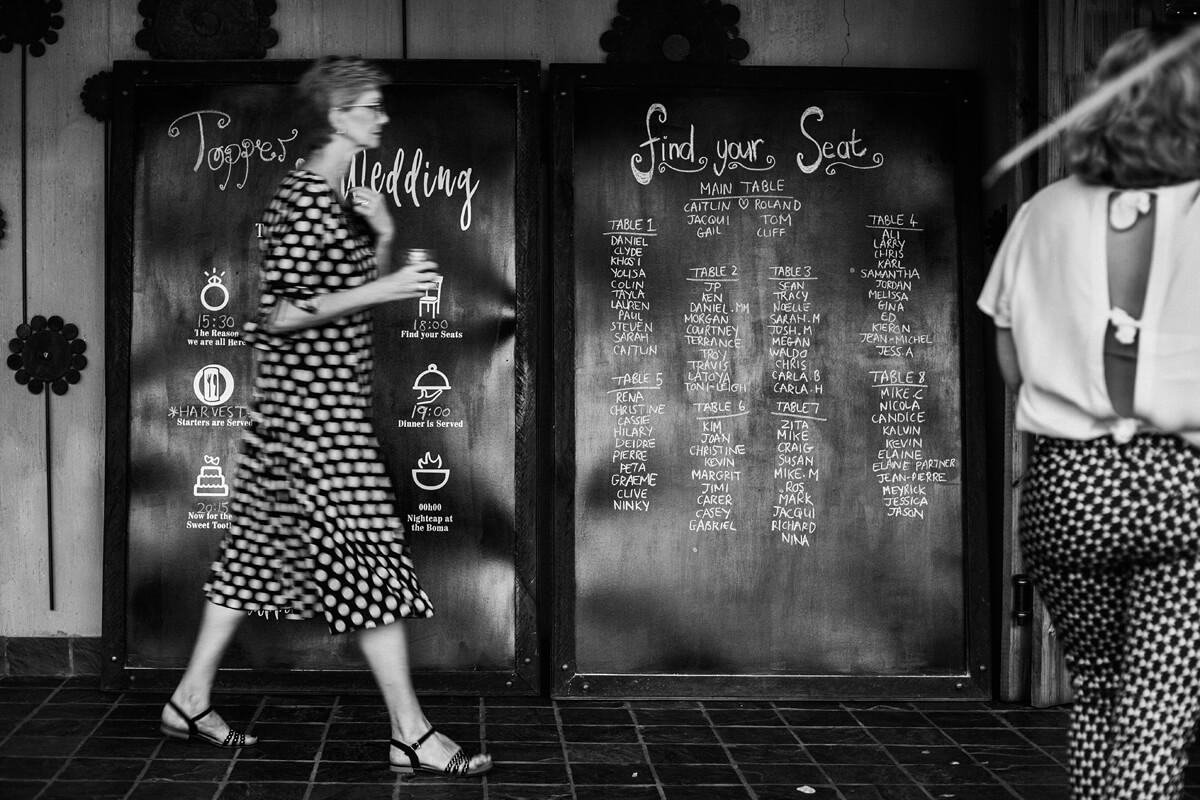 Topper
Wedding
15:30
The Reason
we are all Here
18:00
Find your Seats
*HARVEST
Starters are Served
19:00
Dinner is Served
20:15
Now for the
Sweet Tooth
00h00
Nightcap at
the Boma
find your Seat
MAIN TABLE
CAITLIN ♡ ROLAND
JACQUI TOM
GAIL CLIFF
TABLE 1
DANIEL
CLYDE
KHOSI
YOLISA
COLIN
TAYLA
LAUREN
PAUL
STEVEN
SARAH
CAITLIN
TABLE 2
JP
KEN
DANIEL.MM
MORGAN
COURTNEY
TERRANCE
TROY
TRAVIS
LATOYA
TONI-LEIGH
TABLE 3
SEAN
TRACY
NOELLE
SARAH.M
JOSH.M
MEGAN
WALDO
CHRIS
CARLA.B
CARLA.H
TABLE 4
ALI
LARRY
CHRIS
KARL
SAMANTHA
JORDAN
MELISSA
GINA
ED
KIERON
JEAN-MICHEL
JESS.A
TABLE 5
RENA
CHRISTINE
CASSIE
HILARY
DEIDRE
PIERRE
PETA
GRAEME
CLIVE
NINKY
TABLE 6
KIM
JOAN
CHRISTINE
KEVIN
MARGRIT
JIMI
CARER
CASEY
GABRIEL
TABLE 7
ZITA
MIKE
CRAIG
SUSAN
MIKE.M
ROS
MARK
JACQUI
RICHARD
NINA
TABLE 8
MIKE.C
NICOLA
CANDICE
KALVIN
KEVIN
ELAINE
ELAINE PARTNER
JEAN-PIERRE
MEYRICK
JESSICA
JASON